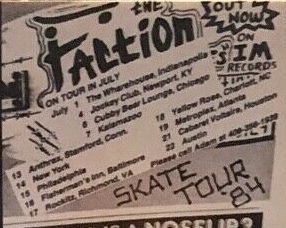 THE
FACTION
OUT
NOW
ON
I.M.
RECORDS
ON TOUR IN JULY
July 1 The Wharehouse, Indianapolis
4 Jockey Club, Newport, KY
6 Cubby Bear Lounge, Chicago
7 Kalamazoo
13 Anthrax, Stamford, Conn.
14 New York
15 Philadelphia
16 Fisherman's Inn, Baltimore
17 Rockitz, Richmond, VA
18 Yellow Rose, Charlot, NC
19 Metroplex, Atlanta
21 Cabaret Voltaire, Houston
22 Austin
Please call Adam at
SKATE
TOUR
'84
A NOSFLIP?